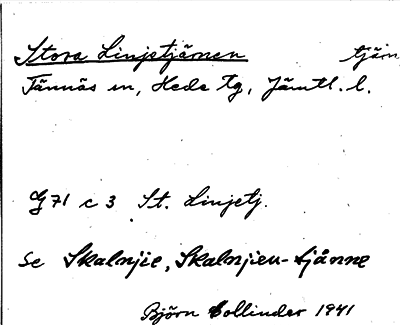 Stora Linjetjärnen tjärn
Tännäs sn, Hede tg, Jämtl. l.
G 71 c 3 St. Linjetj.
Se Skalnjie, Skalnjien-tjånne
Björn Collinder 1941